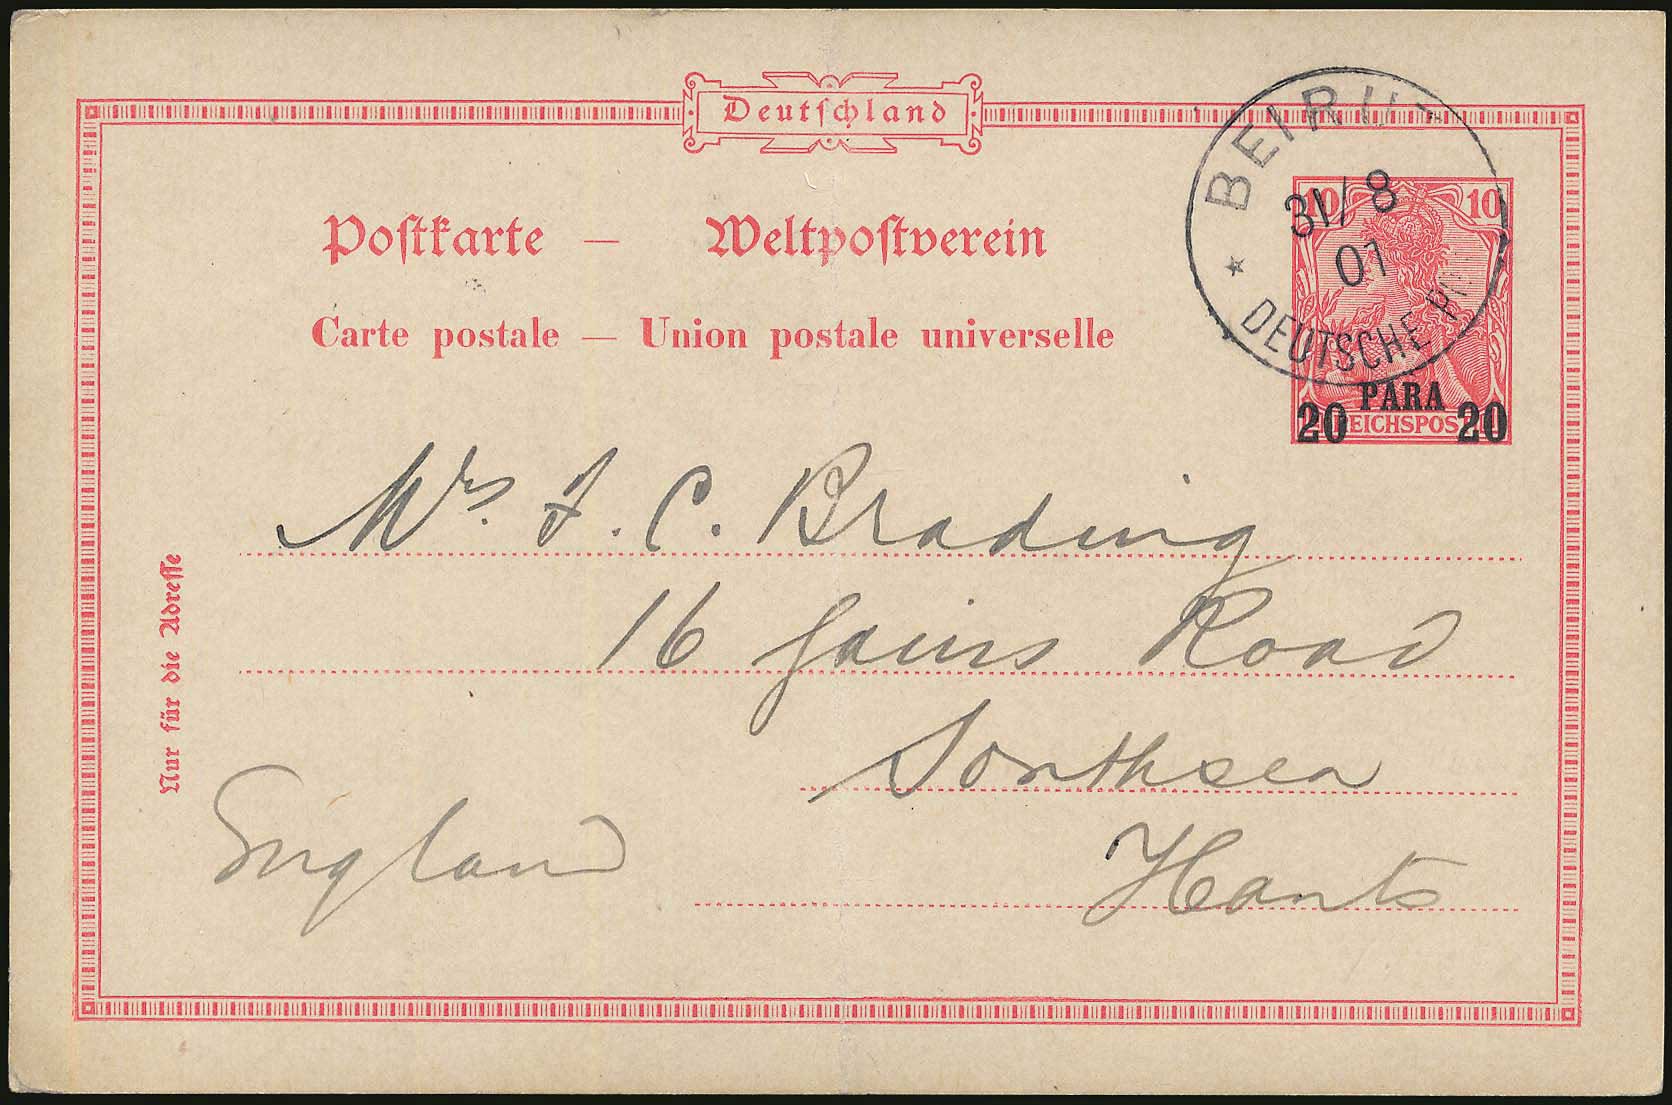 Deutschland
Postkarte — Weltpostverein
Carte postale — Union postale universelle
BEIRUT
31/8
01
* DEUTSCHE
10 10
PARA
20 20
REICHSPOST
Mrs. F. C. Brading
16 Gains Road
Southsea
Hants
England
Nur für die Adresse